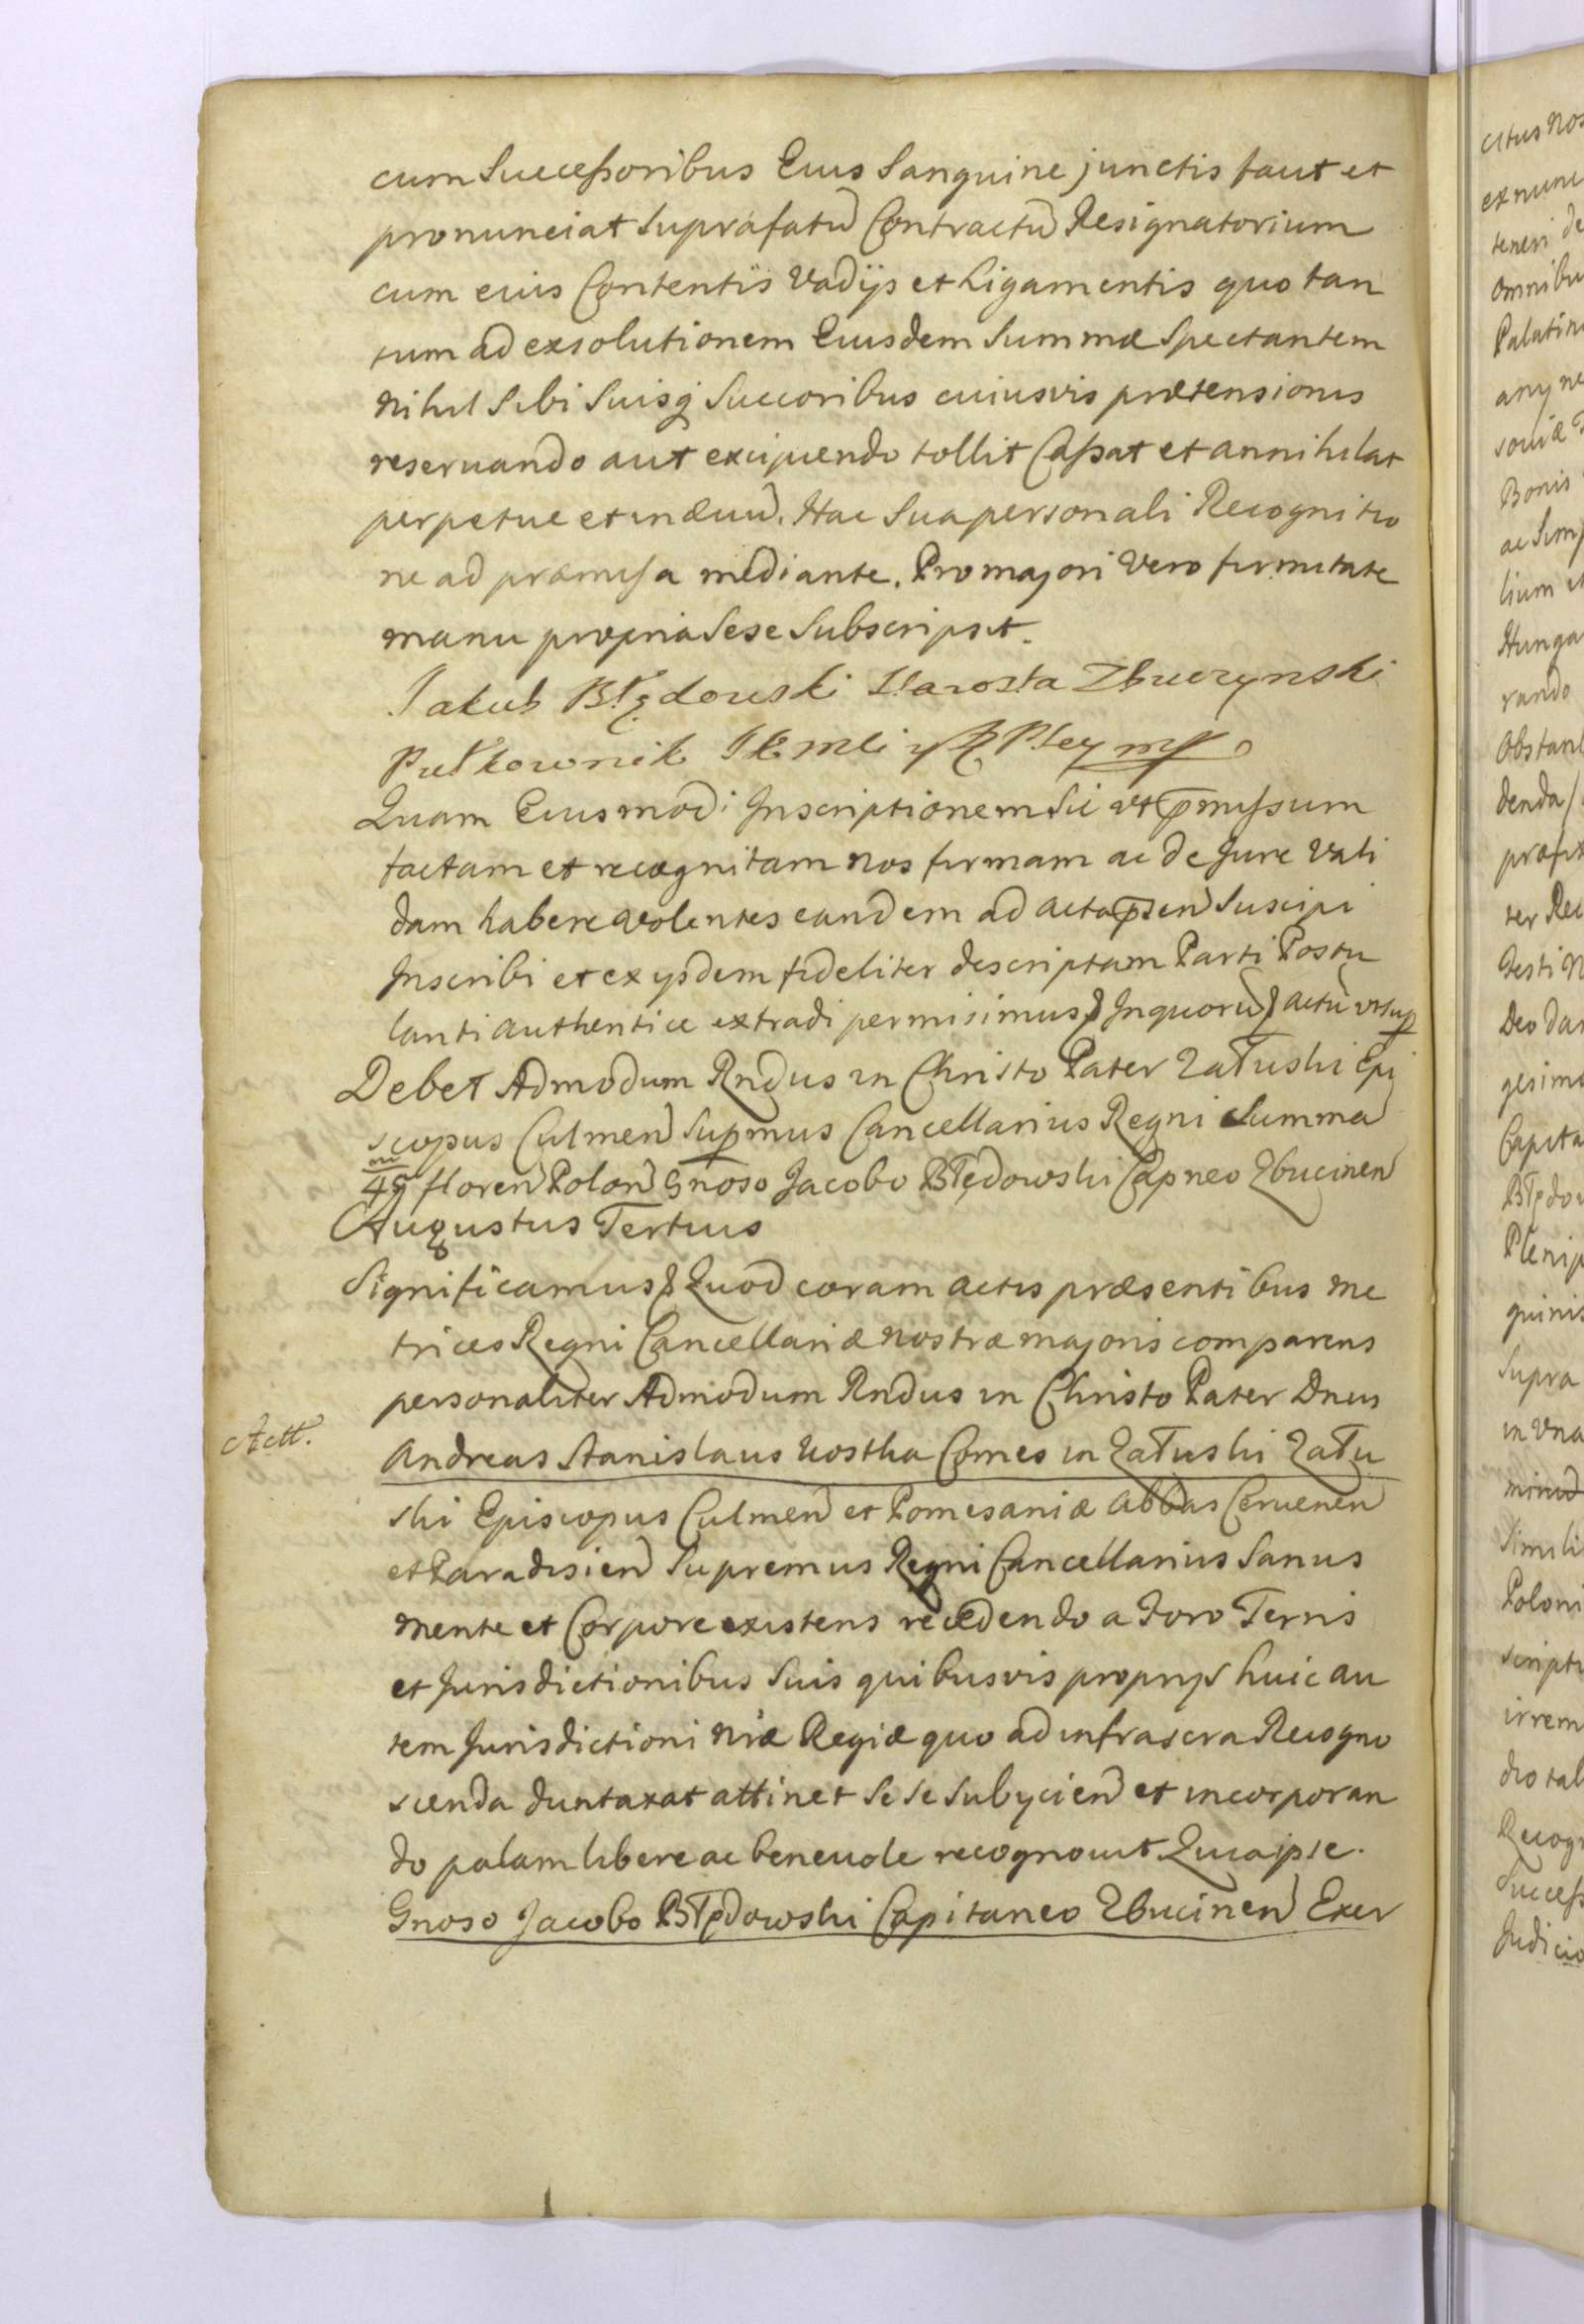 cum Successoribus Eius Sanguine junctis faut et
pronunciat Suprafatũ Contractũ Resignatorium
cum eius Contentis Vadijs et Ligamentis quo tan
tum ad exsolutionem Eiusdem Summæ Spectantem
Nihil Sibi Suisq Succoribus cuiusvis prætensionis
reseruando aut excipiendo tollit Cassat et annihilat
perpetue et in æuũ. Hac Sua personali Recognitio
ne ad præmissa mediante. Pro majori Vero firmitate
manu propria Sese Subscripsit.
Jakub Błędowski Starosta Zbuczynski
Pułkownik
Quam Eiusmodi Inscriptionem Sic vt p̄missum
factam et recognitam Nos firmam ac de Jure Vali
dam habere volentes eandem ad acta p̄sen Suscipi
Inscribi et ex ijsdem fideliter descriptam Parti Postu
lanti authentice extradi permisimus In quorũ actũ vt sup
Debet Admodum Rndus in Christo Pater Załuski Epi
scopus Culmen Sup̄mus Cancellarius Regni Summa
floren Polon Gnoso Jacobo Błędowski Capneo Zbucinen
Augustus Tertius
Significamus Quod coram actis præsentibus Me
trices Regni Cancellariæ Nostræ majoris comparens
personaliter Admodum Rndus in Christo Pater Dnus
Actt.
Andreas Stanislaus Kostka Comes in Załuski Zału
ski Episcopus Culmen et Pomesaniæ Abbas Ceruenen
et Paradisien Supremus Regni Cancellarius Sanus
Mente et Corpore existens recedendo a Foro Terris
et Jurisdictionibus Suis quibusvis proprijs huic au
tem Jurisdictioni Nræ Regiæ quo ad infrascra Recogno
scenda duntaxat attinet Sese Subijcien et incorporan
do palam libere ac beneuole recognouit Quia ipse.
Gnoso Jacobo Błędowski Capitaneo Zbucinen Exer